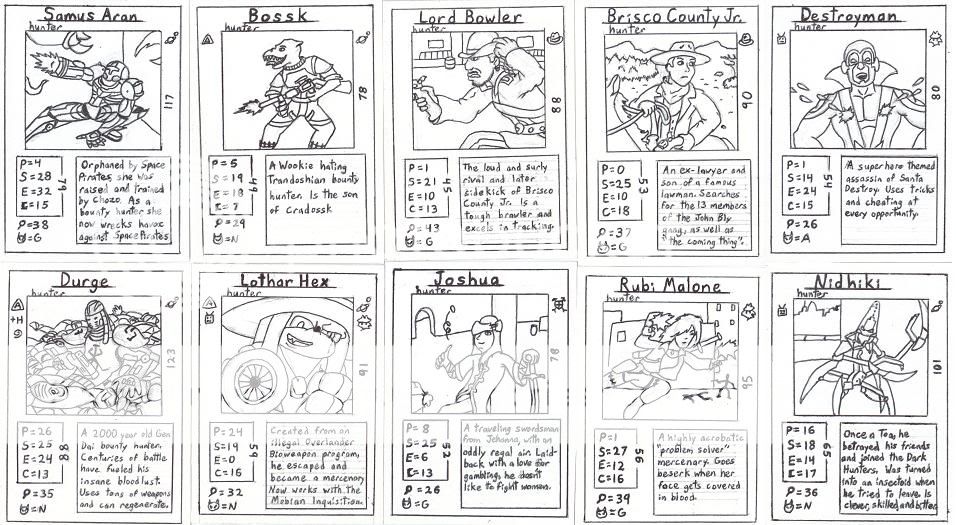 Samus Aran
hunter
117
P=4
S=28
E=32
C=15
79
P=38
=G
Orphaned by Space
Pirates, she was
raised and trained
by Chozo. As a
bounty hunter she
now wrecks havoc
against Space Pirates
Bossk
hunter
78
P=5
S=19
E=18
C=7
49
P=29
=N
A Wookie hating
Trandoshian bounty
hunter. Is the son
of Cradossk
Lord Bowler
hunter
88
P=1
S=21
E=10
C=13
45
P=43
=G
The loud and surly
rival and later
sidekick of Brisco
County Jr. Is a
tough brawler and
excels in tracking.
Brisco County Jr.
hunter
90
P=0
S=25
E=10
C=18
53
P=37
=G
An ex-lawyer and
son of a famous
lawman. Searches
for the 13 members
of the John Bly
gnag, as well as
"the coming thing".
Destroyman
hunter
80
P=1
S=14
E=24
C=15
54
P=26
=A
A superhero themed
assassin of Santa
Destroy. Uses tricks
and cheating at
every opportunity.
Durge
hunter
+H
123
P=26
S=25
E=24
C=13
88
P=35
=N
A 2000 year old Gen
Dai bounty hunter.
Centuries of battle
have fueled his
insane bloodlust.
Uses tons of weapons
and can regenerate.
Lothar Hex
hunter
91
P=24
S=19
E=0
C=16
59
P=32
=N
Created from an
illegal Overlander
Bioweapon program,
he escaped and
became a mercenary
Now works with the
Mobian Inquisition.
Joshua
hunter
78
P=8
S=25
E=6
C=13
52
P=26
=G
A traveling swordsman
from Jehanna, with an
oddly regal air. Laid-
back with a love for
gambling, he doesn't
like to fight women.
Rubi Malone
hunter
95
P=1
S=27
E=12
C=16
56
P=39
=G
A highly acrobatic
"problem solver"
mercenary. Goes
beserk when her
face gets covered
in blood.
Nidhiki
hunter
101
P=16
S=18
E=14
C=17
65
P=36
=N
Once a Toa, he
betrayed his friends
and joined the Dark
Hunters. Was turned
into an insectoid when
he tried to leave. Is
clever, skilled, and bitter.